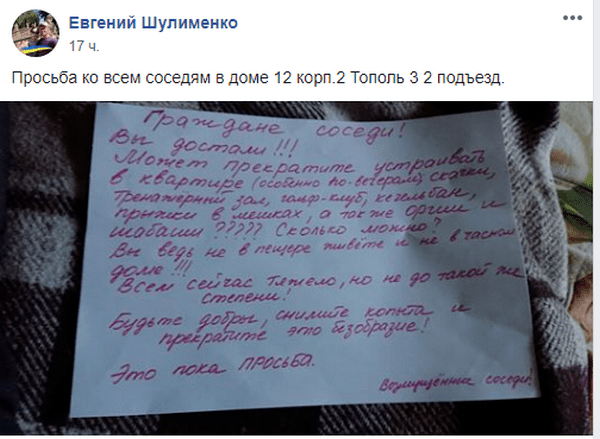 Евгений Шулименко
17 ч.
Просьба ко всем соседям в доме 12 корп.2 Тополь 3 2 подъезд.
Граждане соседи!
Вы достали!!!
Может прекратите устраивать
в квартире (особенно по-вечерам) скачки,
тренажерный зал, гольф-клуб, кегельбан,
прыжки в мешках, а также оргии и
шабаши ????? Сколько можно?
Вы ведь не в пещере живёте и не в часном
доме !!!
Всем сейчас тяжело, но не до такой же
степени!
Будьте добры, снимите копыта и
прекратите это безобразие!
Это пока ПРОСЬБА.
Возмущённые соседи!